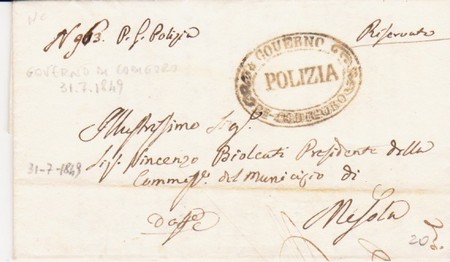 N 963. P. G. Polizia
Riservata
GOVERNO DI CODIGORO
31.7.1849
GOVERNO
POLIZIA
DI CODIGORO
Illustrissimo Sig.
Sig. Vincenzo Biolcati Presidente della
31-7-1849
Commis. del Municipio di
Mesola
20